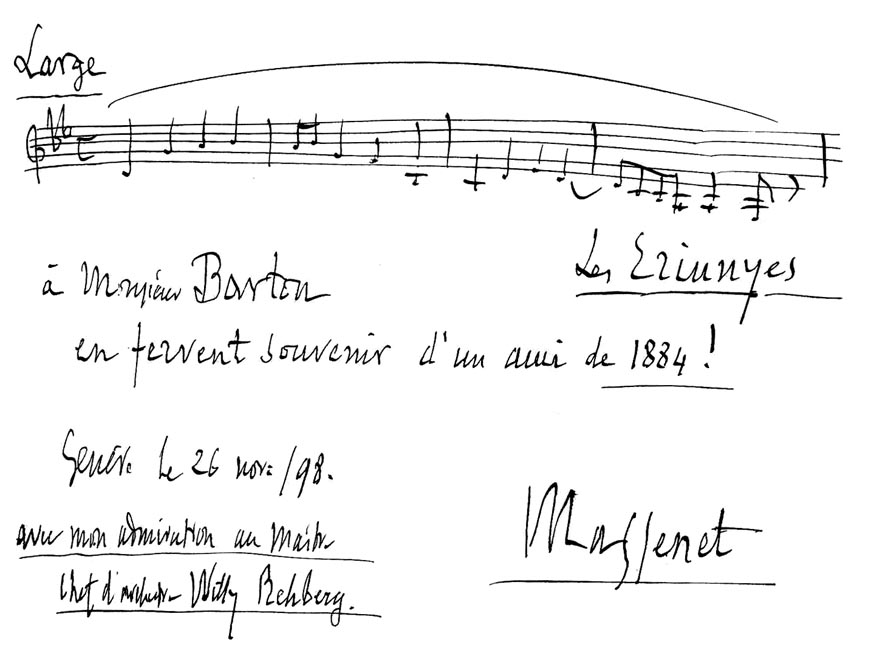 Large
Les Erinnyes
à Monsieur Barton
en fervent souvenir d'un ami de 1884 !
Genève le 26 nov. /98.
avec mon admiration au Maître
Chef d'orchestre Willy Rehberg.
Massenet